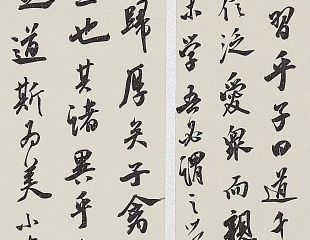 習乎子曰道千
信泛愛眾而親
未學吾必謂之
歸厚矣子禽
也其諸異乎
道斯為美小